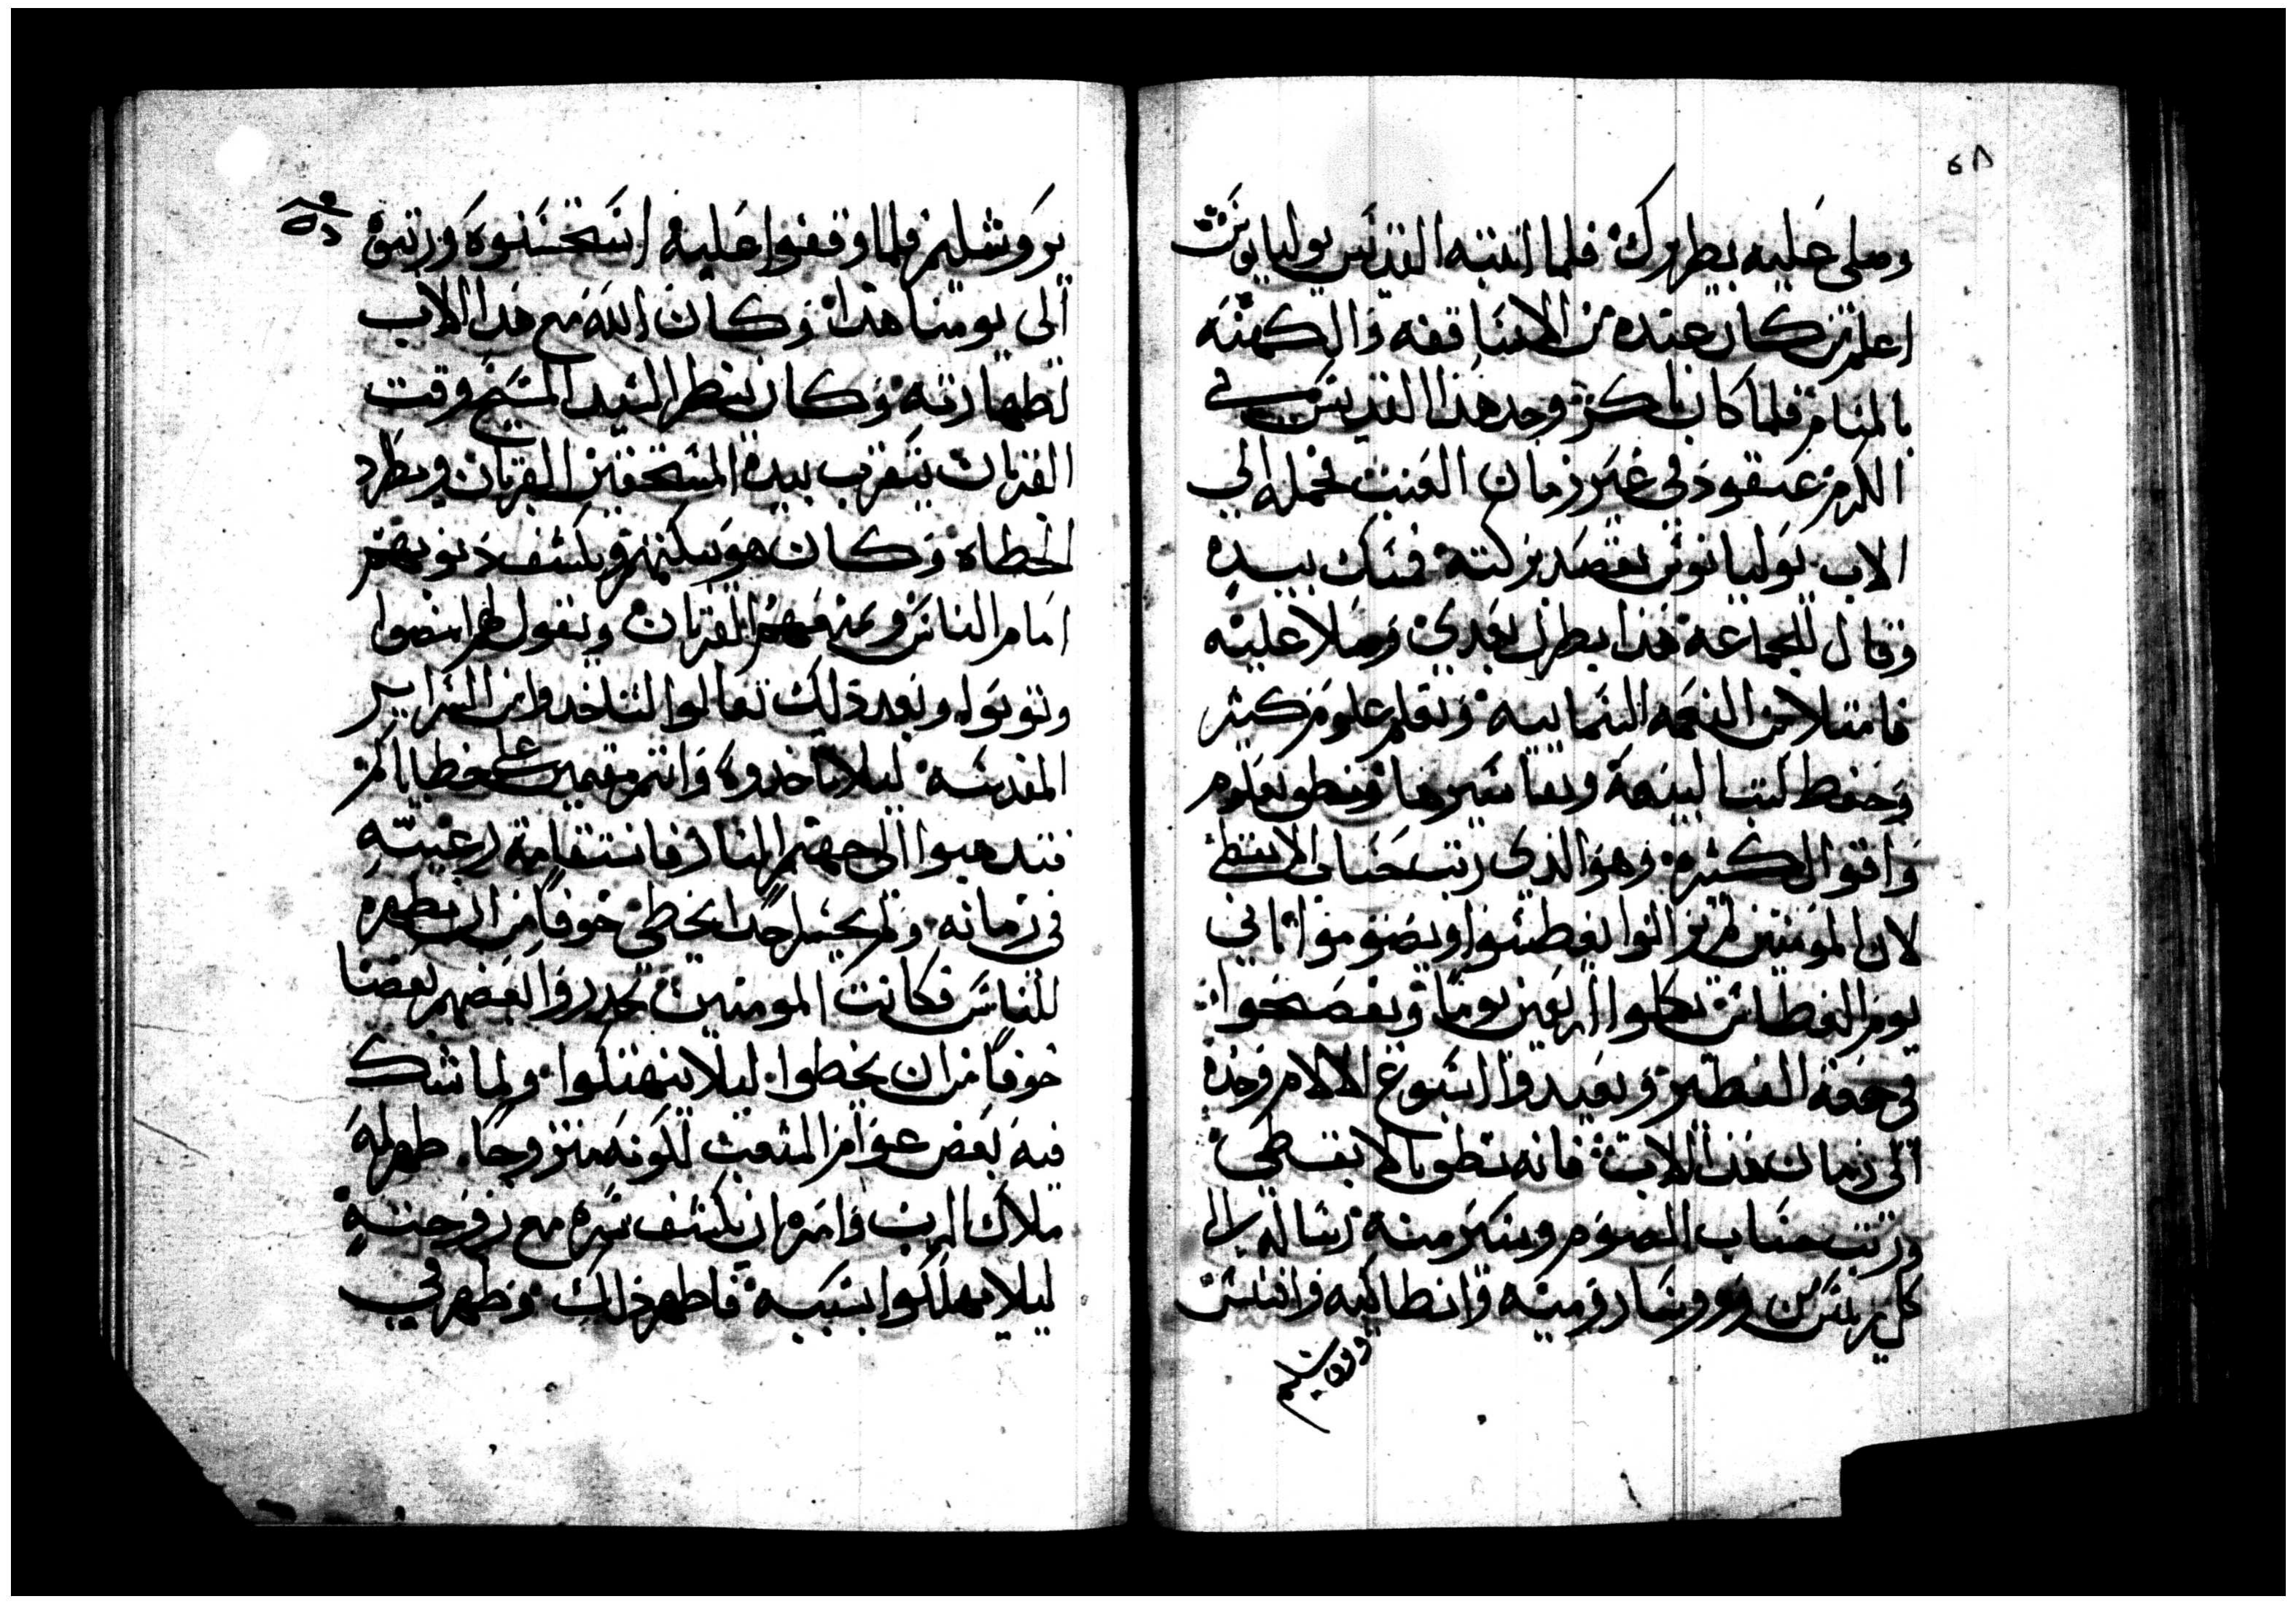 ٤٨
وصلى عليه بطريرك فلما انتبه القديس يوليانوس
اعلم من كان عنده من الاساقفه والكهنه
بالمنام فلما كان باكر وجد هذا القديس في
الكرم عنقود في غير زمان العنب فحمله الي
الاب يوليانوس يقصد بركته فمسك بيده
وقال للجماعة هذا بطرك بعدي وصلا عليه
فامتلا من النعمه السماييه وتعلم علوم كثير
وحفظ كتب البيعة وتفاسيرها ونطق بعلوم
واقوال كثيره وهو الذي رتب حساب الابقطي
لان المومنين لم يزالوا يغطسوا ويصوموا تاني
يوم الغطاس يكملوا اربعين يوما ويفصحوا
في جمعة الفطير ويعيدوا اسبوع الالام وحده
الى زمان هذا الاب فانه نطق بالابقطي
ورتب حساب الصوم وسير منه رساله الى
كل من روسا روميه وانطاكيه وافسس
ويروشليم
يروشليم فلما وقفوا عليه استحسنوه ورتبوه
الى يومنا هدا وكان الله مع هدا الاب
لطهارته وكان ينظر السيد المسيح وقت
القربان يتقرب بيده المستحقين القربان ويطرد
الخطاه وكان هو يبكتهم ويكشف دنوبهم
امام الناس ويمنعهم القربان ويقول لهم امضوا
وتوبوا وبعد دلك تعالوا لتاخدوا من السراير
المقدسه ليلا تاخدوه وانتم مقيمين على خطاياكم
فتدهبوا الى جهنم النار فاستقامة رعيته
في زمانه ولم يجسر احدا يخطى خوفا من ان يظهره
للناس فكانت المومنين يحدروا بعضهم بعضا
خوفا من ان يخطوا ليلا ينهتكوا ولما شك
فيه بعض عوام الشعب لكونه متزوجا ظهر له
ملاك الرب وامره ان يكشف سره مع زوجته
ليلا يهلكوا بسببه فاظهر ذلك وظهر في